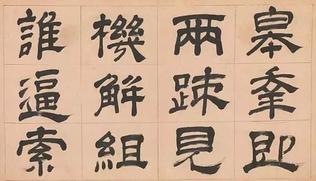 皋幸即
兩踈見
機解組
誰逼索